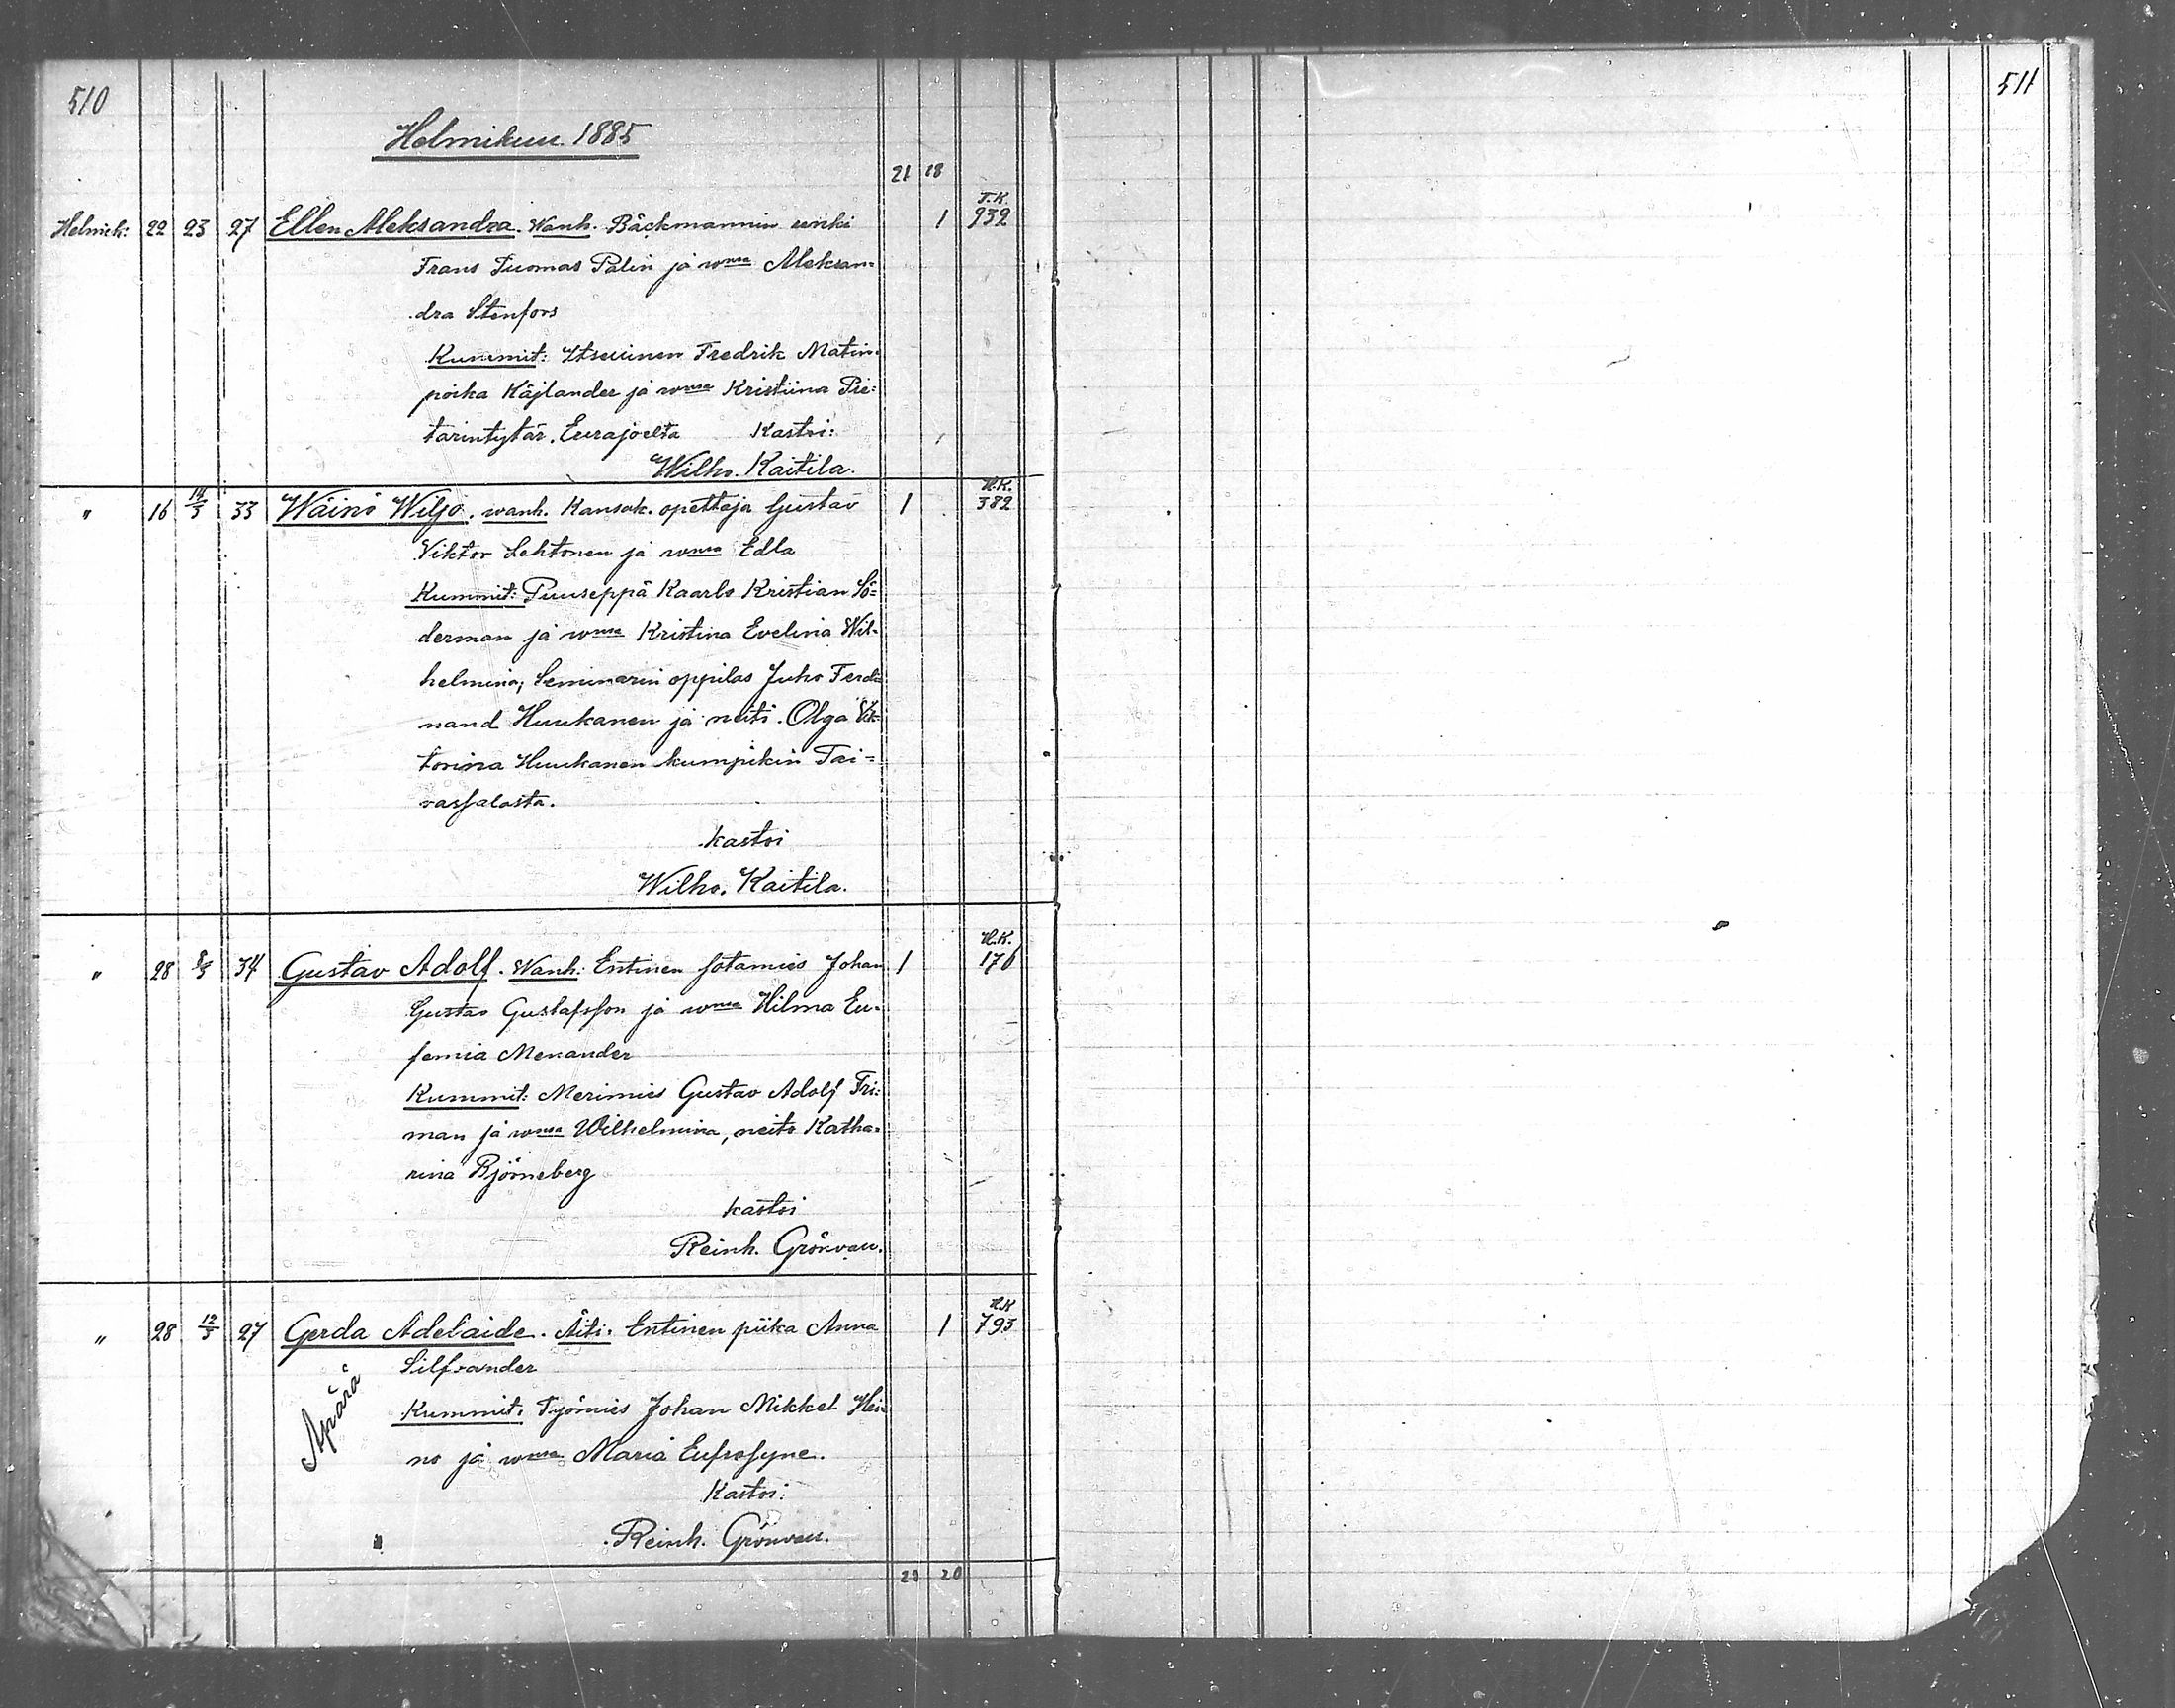 510
511
Helmikuu. 1885
21 18
Helmik: 22 23 27 Ellen Aleksandra. Wanh. Bäckmannin 1 T.K. 932
Frans Tuomas Palin ja wmsa Aleksan=
dra Stenfors
Kummit: Itsellinen Fredrik Matin=
poika Käjlander ja wmsa Kristiina Pie=
tarintytär. Eurajoelta Kastoi:
Wilho. Kaitila.
" 16 14/3 33 Wäinö Wiljo. wanh. Kansak. opettaja Gustav 1 H.K. 382
Viktor Lehtonen ja wmsa Edla
Kummit: Puuseppä Kaarlo Kristian Sö=
derman ja wmsa Kristina Evelina Wil=
helmina; Seminarin oppilas Juho Ferdi=
nand Huukanen ja neiti. Olga Vik=
torina Huukanen kumpikin Tai=
vassalosta.
kastoi
Wilho. Kaitila.
" 28 8/3 34 Gustav Adolf. Wanh: Entinen sotamies Johan 1 H.K. 176
Gustav Gustafsson ja wmsa Hilma Eu=
femia Menander
Kummit: Merimies Gustav Adolf Fri=
man ja wmsa Wilhelmina, neito Katha=
rina Björneberg
kastoi
Reinh. Grönvall.
" 28 12/3 27 Gerda Adelaide. Äiti. Entinen piika Anna 1 H.K 793
Silfvander
Äpärä
Kummit. Työmies Johan Mikkel Hei=
no ja wmsa Maria Eufrosyne.
Kastoi:
Reinh. Grönvall.
23 20